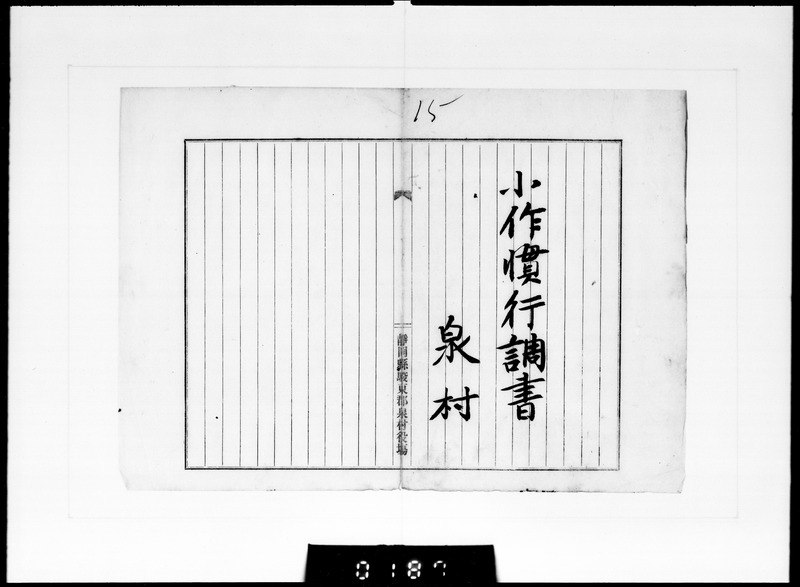 15
小作慣行調書
泉村
靜岡縣駿東郡泉村役場
0187